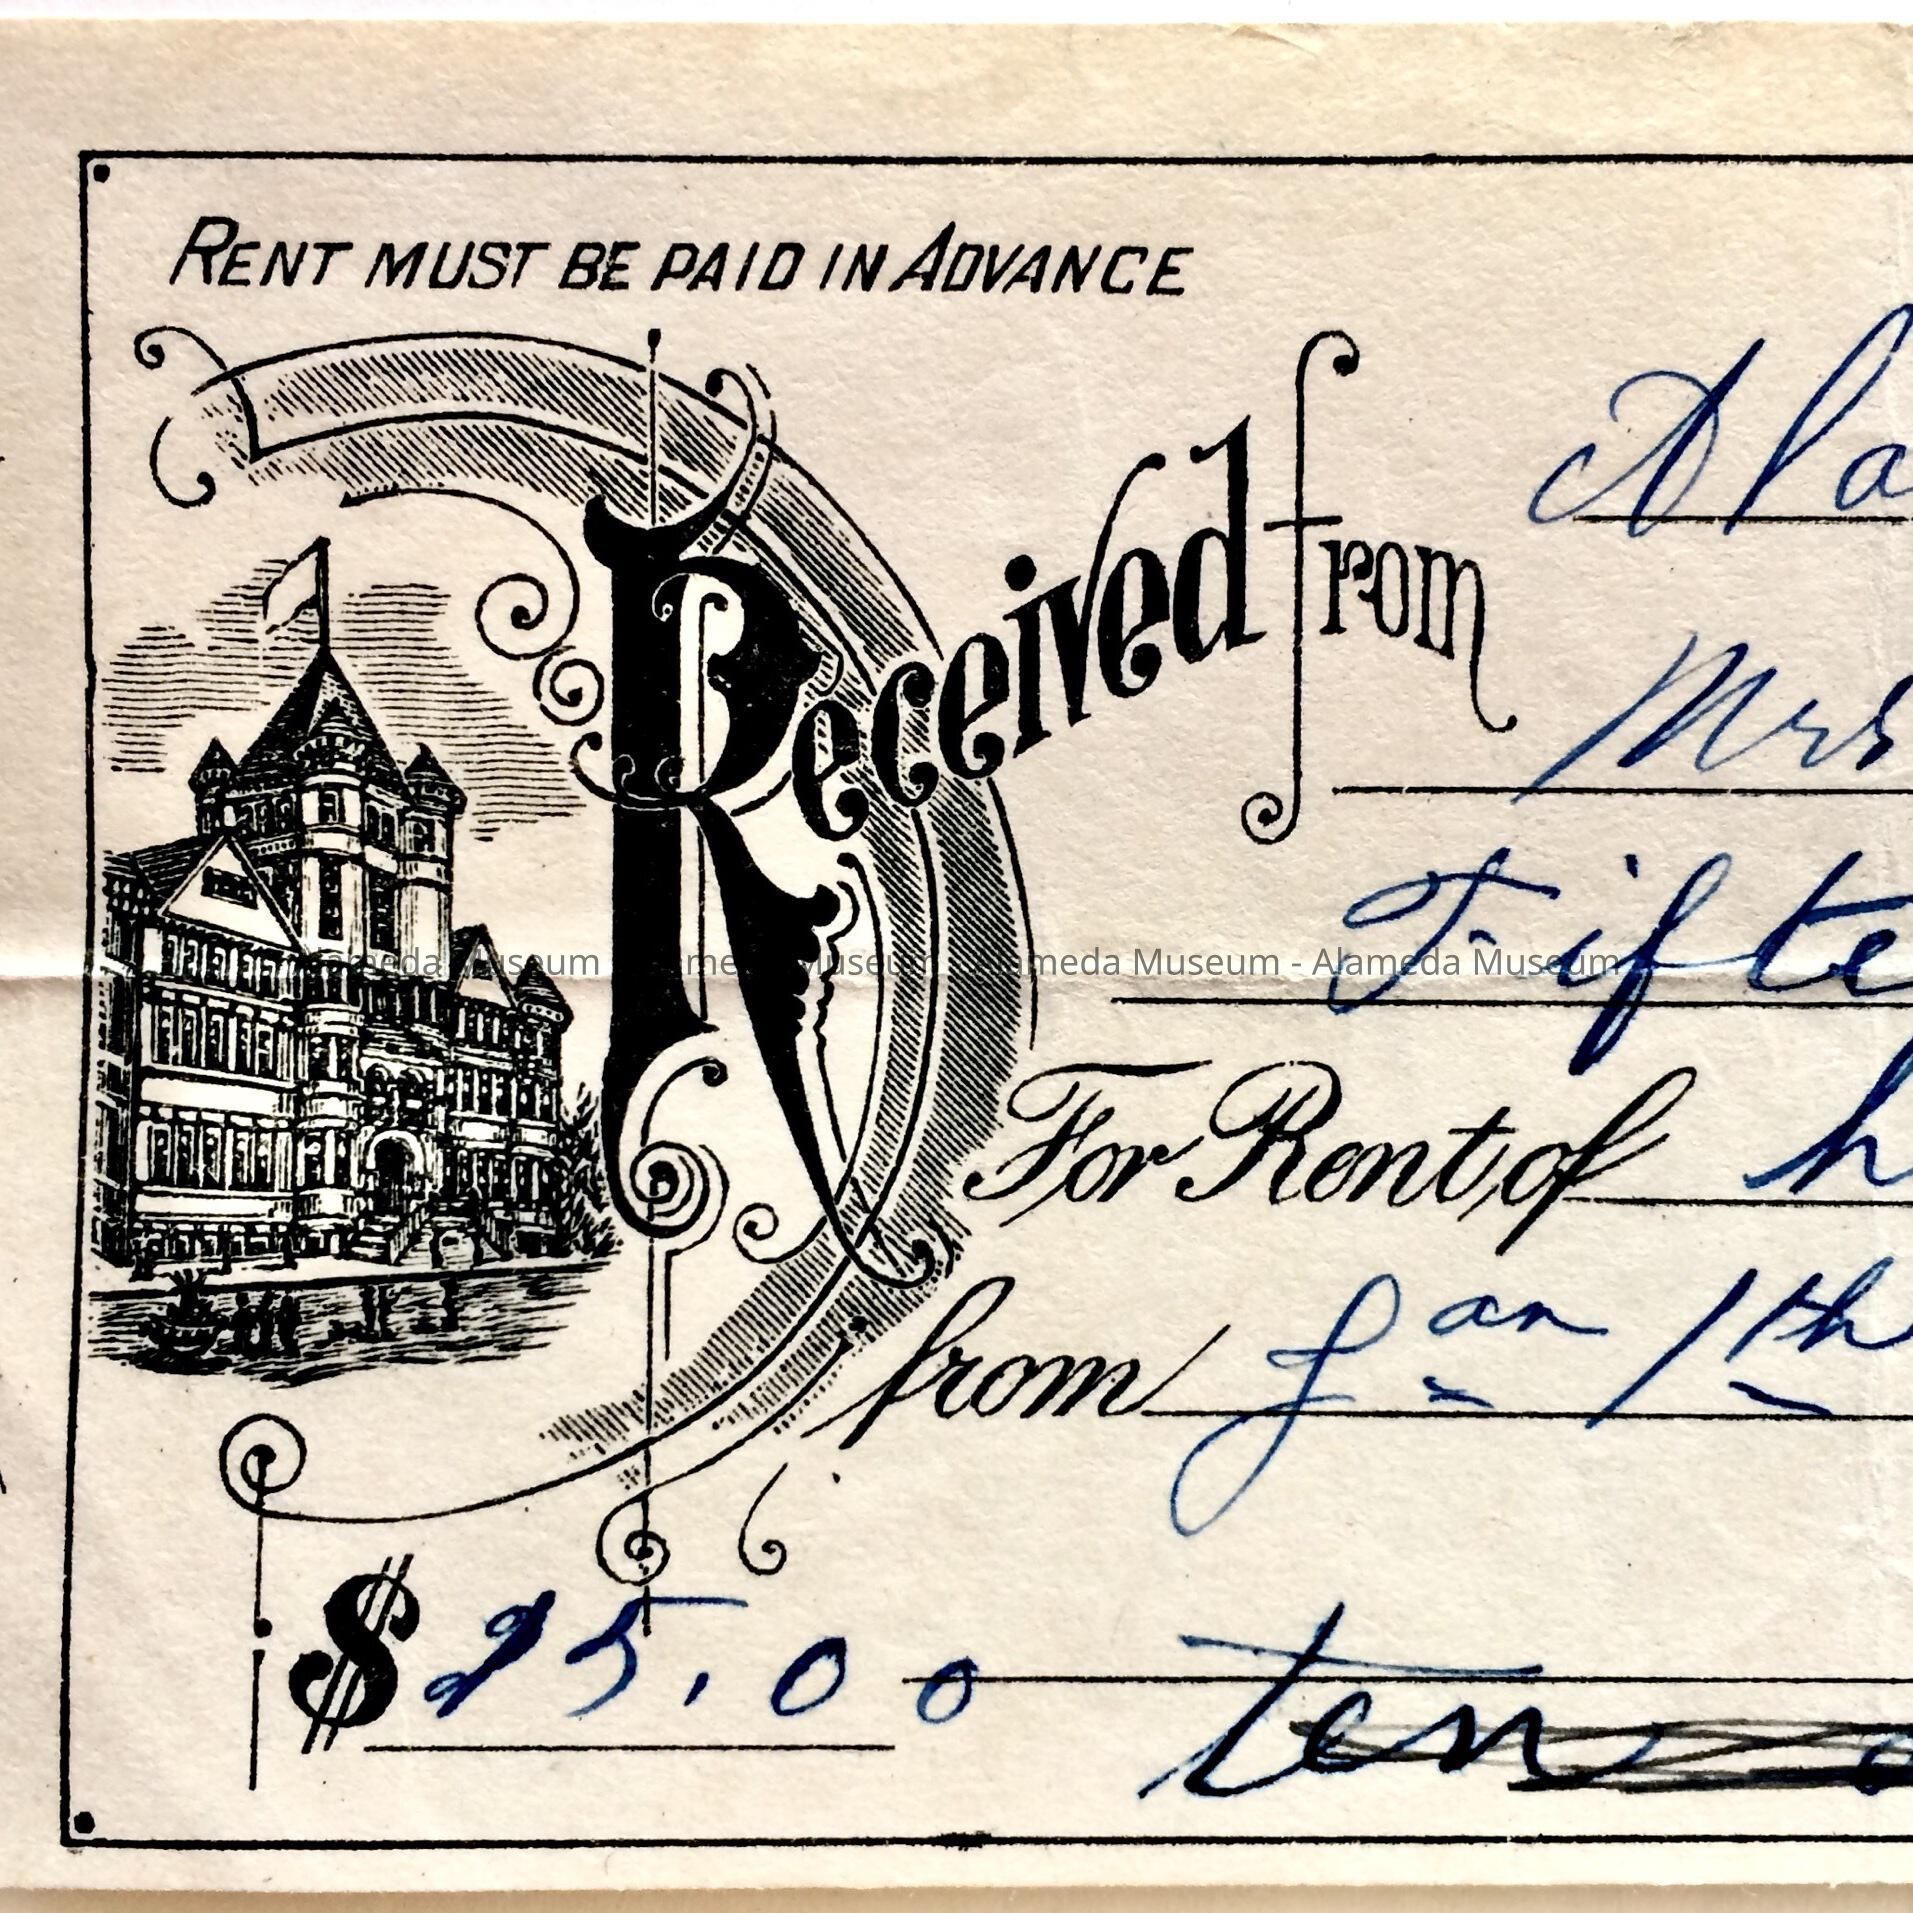 RENT MUST BE PAID IN ADVANCE
Received from Ala
Mrs
Fifte
Alameda Museum - Alameda Museum - Alameda Museum - Alameda Museum
For Rent, of h
from Jan 1th
$ 25.00
ten